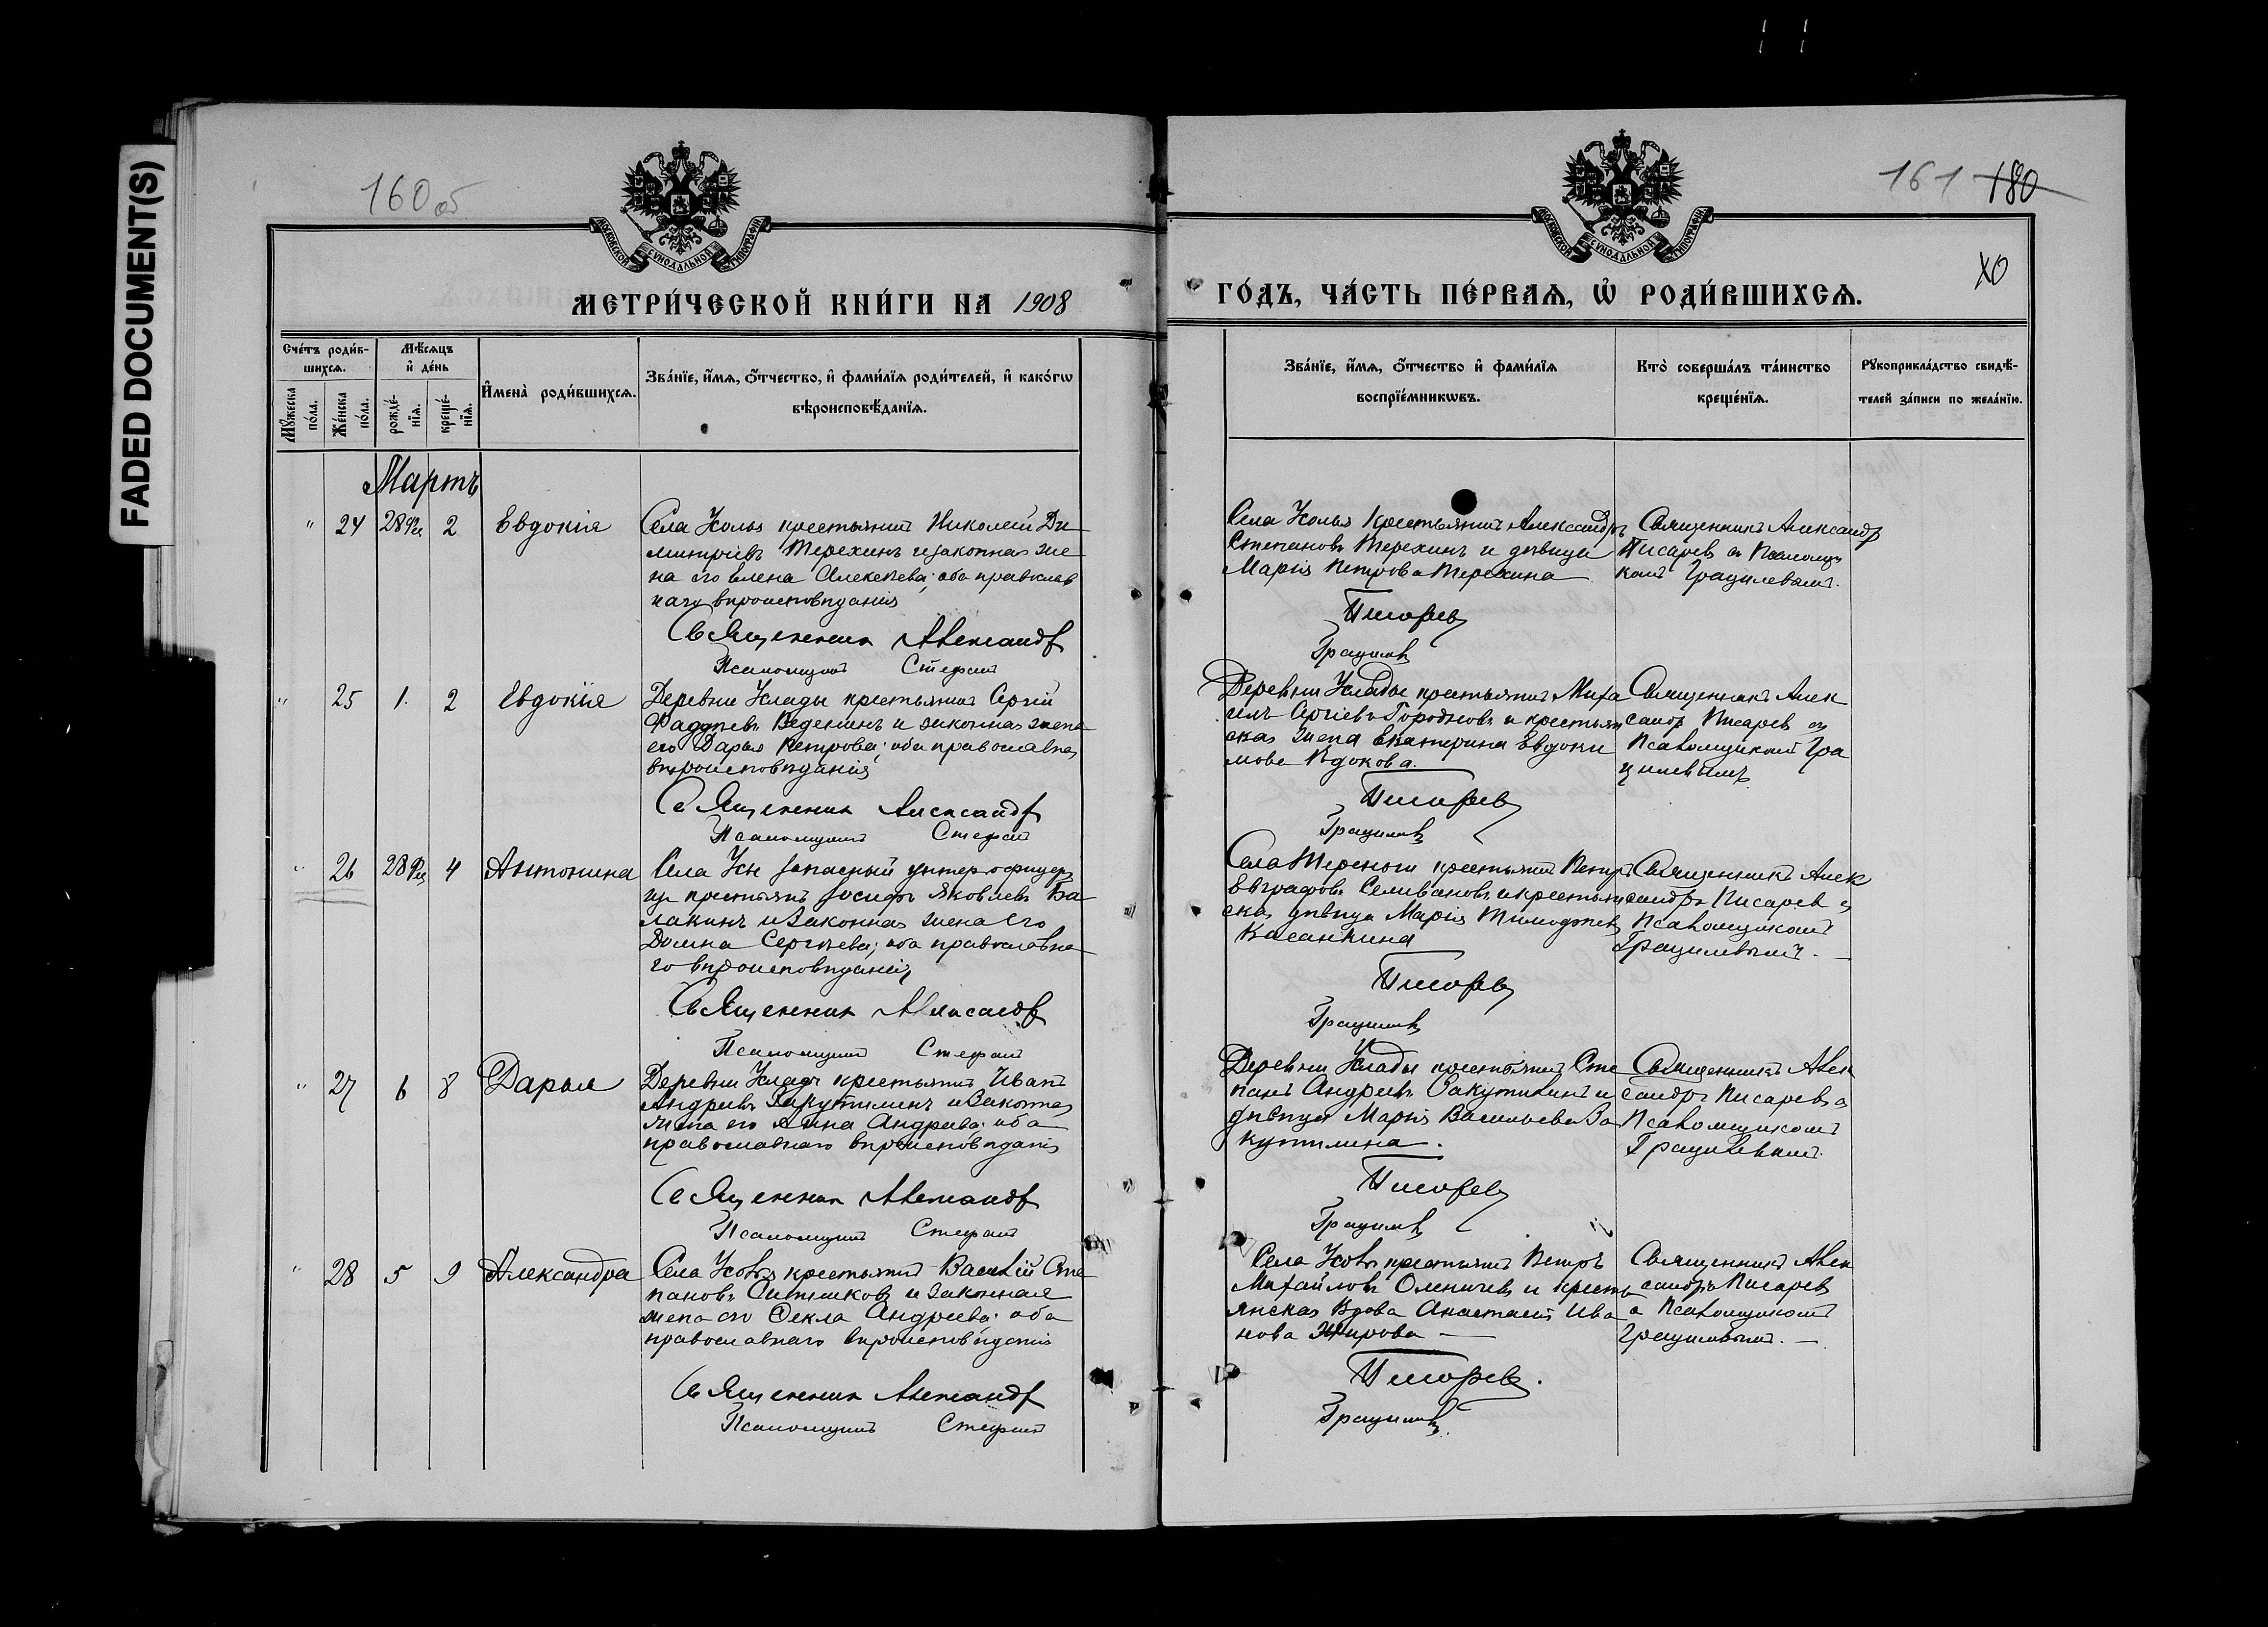 FADED DOCUMENT(S)
160 об
МОСКОВСКОЙ СУНОДАЛЬНОЙ ТИПОГРАФІИ
МЕТРИ́ЧЕСКОЙ КНИ́ГИ НА 1908
Сче́тъ роди́в-
шихсѧ.
Мѣ́сѧцъ
и҆ де́нь
Мꙋ́жеска
по́ла.
Же́нска
по́ла.
рожде́-
нїѧ.
креще́-
нїѧ.
И҆мена̀ роди́вшихсѧ.
Зва́нїе, и҆́мѧ, ѻ҆́тчество, и҆ фами́лїѧ роди́телей, и҆ како́гѡ
вѣроисповѣ́данїѧ.
Мартъ
" 24 28 Фе 2 Евдокія
крестьянинъ Николай Ди-
митріевъ Терехинъ и законная же-
на его Елена Алексѣева; оба православ
наго вѣроисповѣданія
Священникъ Александр
Псаломщикъ Стефанъ
" 25 1. 2 Евдокія
Деревни крестьянинъ Сергій
Фаддѣевъ и законная жена
его Дарья Петрова; оба православна
вѣроисповѣданія
Священникъ Александр
Псаломщикъ Стефанъ
" 26 28 Фе 4 Антонина
Села запасный унтер-офицеръ
изъ крестьянъ Іосифъ Яковлевъ Ба-
лакинъ и законная жена его
Домна Сергѣева; оба православна
го вѣроисповѣданія
Священникъ Александр
Псаломщикъ Стефанъ
" 27 6 8 Дарья
Деревни крестьянинъ Иванъ
Андреевъ Закутилинъ и законная
жена его Анна Андреева; оба
православнаго вѣроисповѣданія
Священникъ Александр
Псаломщикъ Стефанъ
" 28 5 9 Александра
Села крестьянинъ Василій Сте
пановъ и законная
жена его Ѳекла Андреева; оба
православнаго вѣроисповѣданія
Священникъ Александр
Псаломщикъ Стефанъ
161 180
МОСКОВСКОЙ СУНОДАЛЬНОЙ ТИПОГРАФІИ
ГО́ДЪ, ЧА́СТЬ ПЕ́РВАѦ, Ѡ҆ РОДИ́ВШИХСѦ.
Зва́нїе, и҆́мѧ, ѻ҆́тчество и҆ фами́лїѧ
воспрїе́мникѡвъ.
Кто̀ соверша́лъ та́инство
креще́нїѧ.
Рꙋкоприкла́дство свидѣ́-
телей за́писи по жела́нїю.
Села крестьянинъ Александръ
Степановъ Терехинъ и дѣвица
Марія Петрова Терехина
Писаревъ
Грацилевъ
Священникъ Александр
Писаревъ съ Псаломщи
комъ Грацилевымъ.
Деревни крестьянинъ Миха
илъ Сергіевъ и крестьян
ская жена Екатерина Евдоки
мова
Писаревъ
Грацилевъ
Священникъ Алек
сандръ Писаревъ съ
Псаломщикомъ Гра
цилевымъ
Села крестьянинъ Петръ
Евграфовъ Селивановъ и крестьян
ская дѣвица Марія Тимофѣев
Касанкина
Писаревъ
Грацилевъ
Священникъ Алек
сандръ Писаревъ съ
Псаломщикомъ
Грацилевымъ. —
Деревни крестьянинъ Сте
панъ Андреевъ Закутилинъ и
дѣвица Марія Васильева За
кутилина.
Писаревъ
Грацилевъ
Священникъ Алек
сандръ Писаревъ съ
Псаломщикомъ
Грацилевымъ.
Села крестьянинъ Петръ
Михайловъ и кресть
янская вдова Анастасія Ива
нова Жирова —
Писаревъ.
Грацилевъ.
Священникъ Алек
сандръ Писаревъ
съ Псаломщикомъ
Грацилевымъ. —